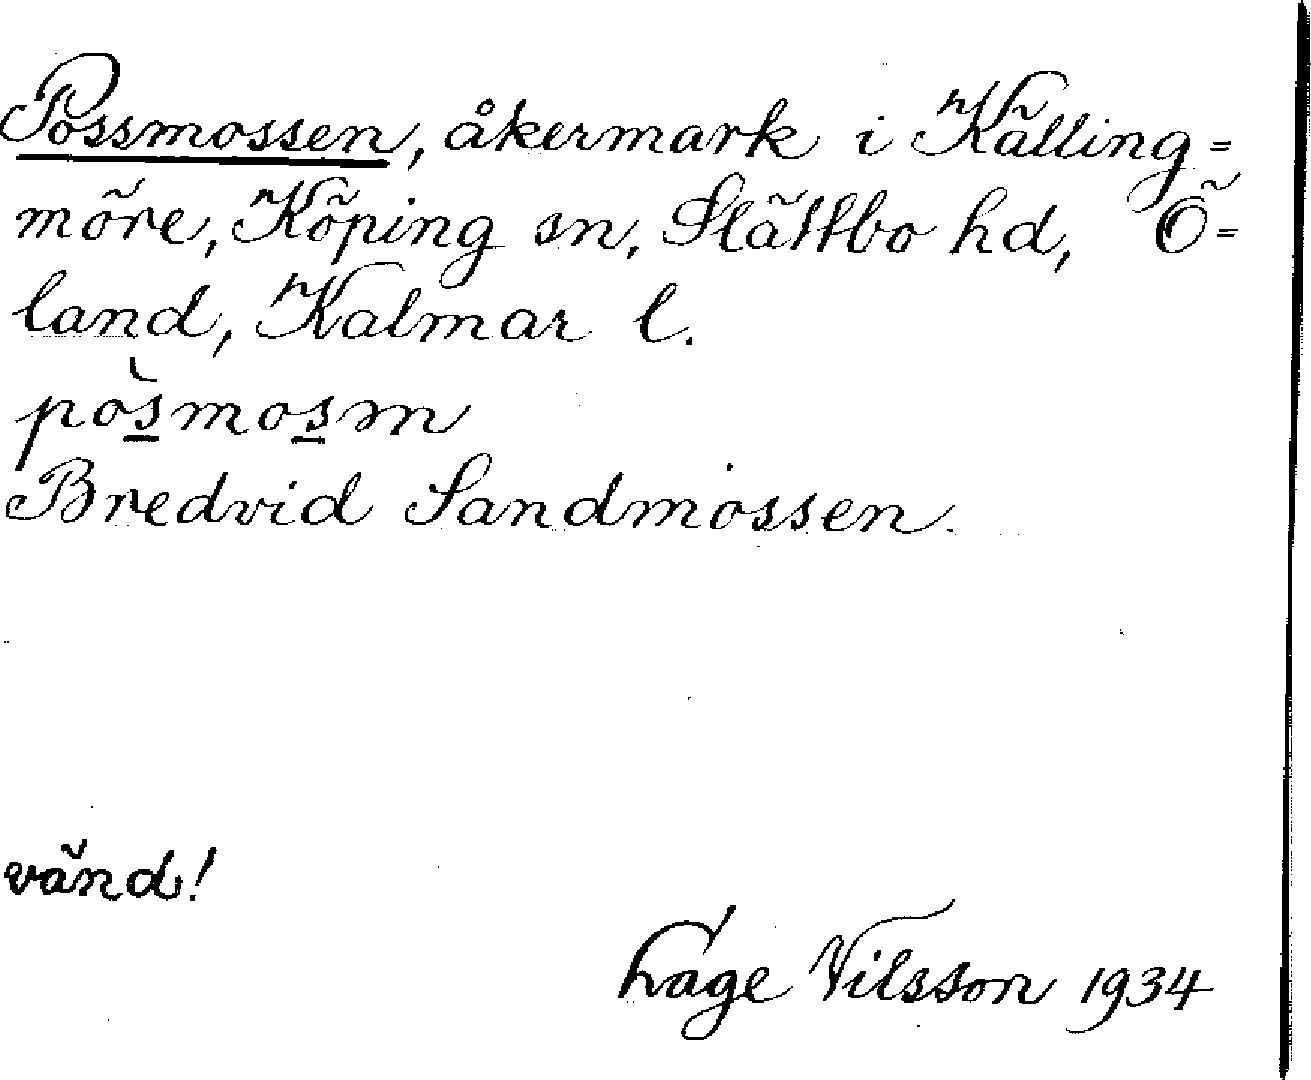 Possmossen, åkermark i Källing=
möre, Köping sn, Slättbo hd, Ö=
land, Kalmar l.
pòsmosm
Bredvid Sandmossen.
vänd!
Lage Nilsson 1934